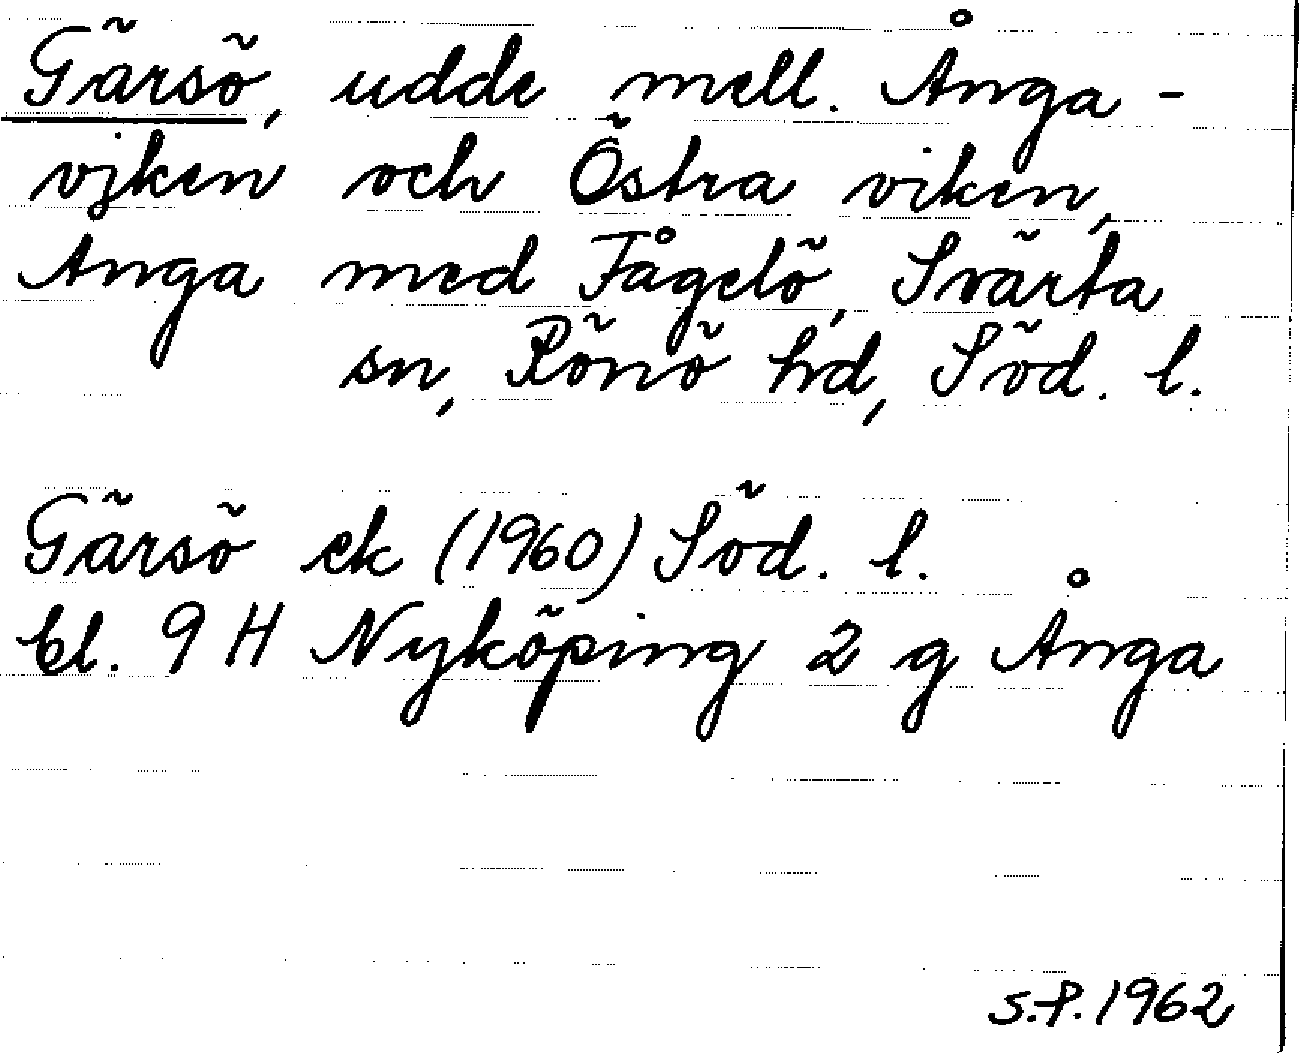 Gärsö, udde mell. Ånga-
viken och Östra viken,
Anga med Fågelö, Svärta
sn, Rönö hd, Söd. l.
Gärsö ek (1960) Söd. l.
bl. 9 H Nyköping 2 g Ånga
S.P. 1962